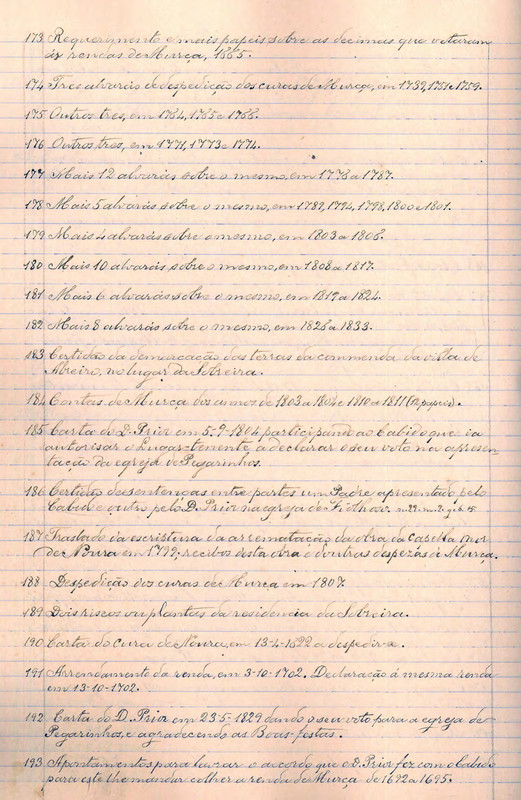 173 Requerimento e mais papeis sobre as decimas que voturam
ás rendas de Murça, 1665.
174 Tres alvarás de despedição dos curas de Murça, em 1739, 1751 e 1759.
175 Outros tres, em 1764, 1765 e 1766.
176 Outros tres, em 1771, 1773 e 1774.
177 Mais 12 alvarás sobre o mesmo, em 1776 a 1787.
178 Mais 5 alvarás sobre o mesmo, em 1789, 1794, 1798, 1800 e 1801.
179 Mais 4 alvarás sobre o mesmo, em 1803 a 1806.
180 Mais 10 alvarás sobre o mesmo, em 1808 a 1817.
181 Mais 6 alvarás sobre o mesmo, em 1819 a 1824.
182 Mais 8 alvarás sobre o mesmo, em 1826 a 1833.
183 Certidão da demarcação das terras da commenda da villa de
Abreiro, no lugar da Sobreira.
184 Contas de Murça dos annos de 1803 a 1804 e 1810 a 1811 (12 papeis).
185 Carta do D. Prior em 5-9-1804 participando ao Cabido que ia
autorisar o Lugar-tenente a declarar o seu voto na apresen-
tação da egreja de Pegarinhos.
186 Certidão da sentença entre partes um Padre apresentado pelo
Cabido e outro pelo D. Prior na egreja de Fiolhoso.
187 Traslado da escriptura da arrematação da obra da Capella Mor
de Noura em 1799; recibos desta obra e doutras despezas de Murça.
188 Despedição dos curas de Murça em 1807.
189 Dois riscos ou plantas da residencia da Sobreira.
190 Carta do Cura de Noura, em 13-4-1622 a despedir-se.
191 Arrendamento da renda, em 3-10-1702. Declaração á mesma renda
em 13-10-1702.
192 Carta do D. Prior em 23-5-1829 dando o seu voto para a egreja de
Pegarinhos, e agradecendo as Boas-festas.
193 Apontamentos para lavrar o accordo que o D. Prior fez com o Cabido
para este lhe mandar colher a renda de Murça de 1692 a 1695.